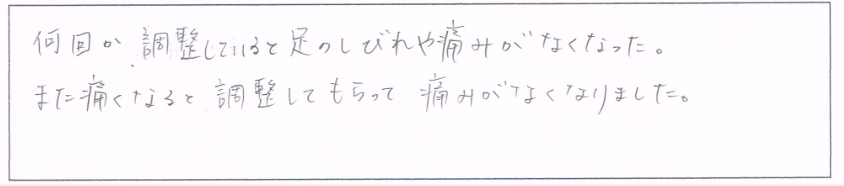 何回か調整していると足のしびれや痛みがなくなった。
また痛くなると調整してもらって痛みがなくなりました。